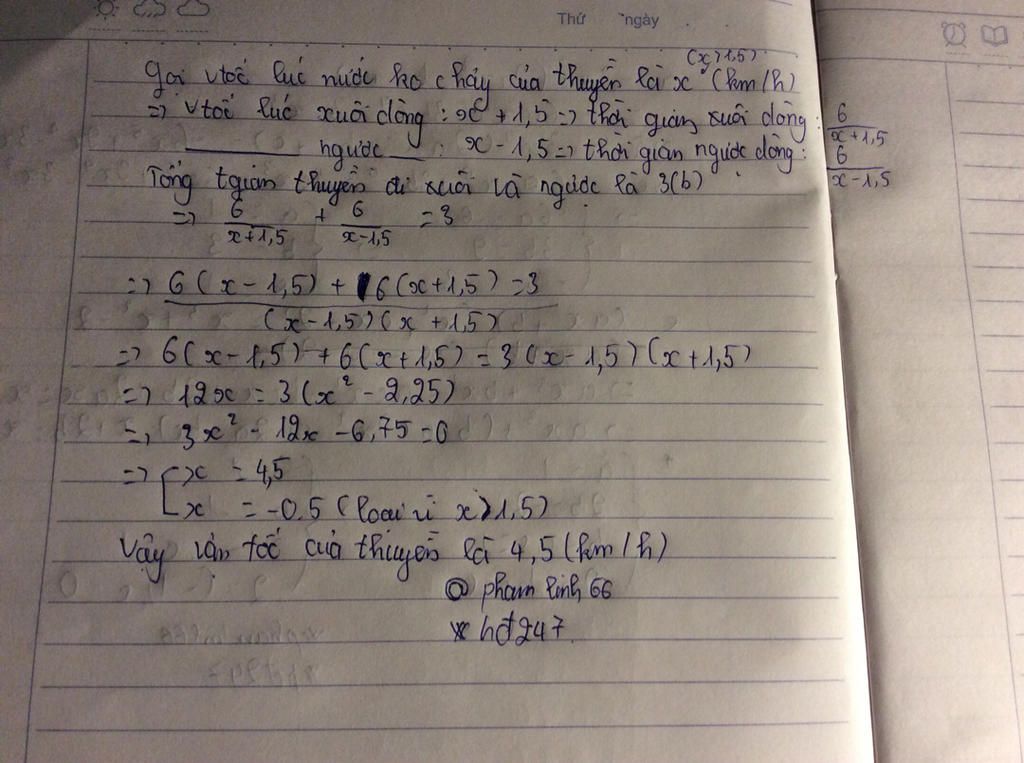 Thứ ngày
(x > 1,5)
Gọi vtốc lúc nước ko chảy của thuyền là x (km/h)
=> vtốc lúc xuôi dòng : x + 1,5 => thời gian xuôi dòng : 6/(x+1,5)
____ ngược __ : x - 1,5 => thời gian ngược dòng : 6/(x-1,5)
Tổng tgian thuyền đi xuôi và ngược là 3(h)
=> 6/(x+1,5) + 6/(x-1,5) = 3
=> (6(x - 1,5) + 6(x+1,5))/((x-1,5)(x+1,5)) = 3
=> 6(x-1,5) + 6(x+1,5) = 3(x-1,5)(x+1,5)
=> 12x = 3(x² - 2,25)
=> 3x² - 12x - 6,75 = 0
=> [x = 4,5
x = -0.5 (loại vì x > 1,5)
Vậy vận tốc của thuyền là 4,5 (km/h)
@ pham linh 66
* hđ247